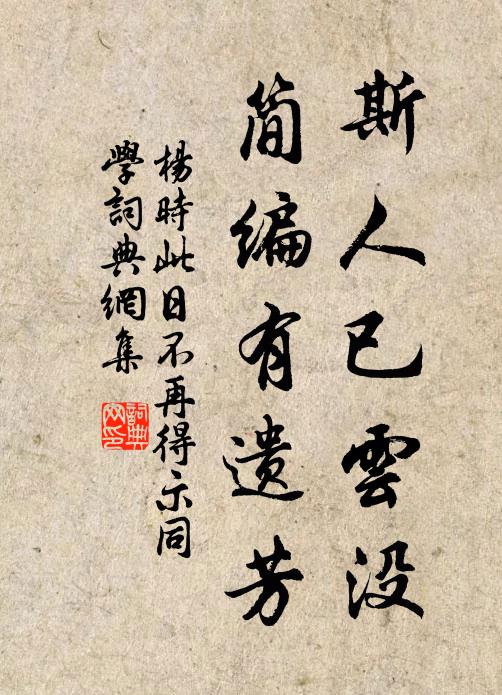 斯人已雲没
简编有遗芳
楊時此日不再得示同
學詞典網集
詞典网印